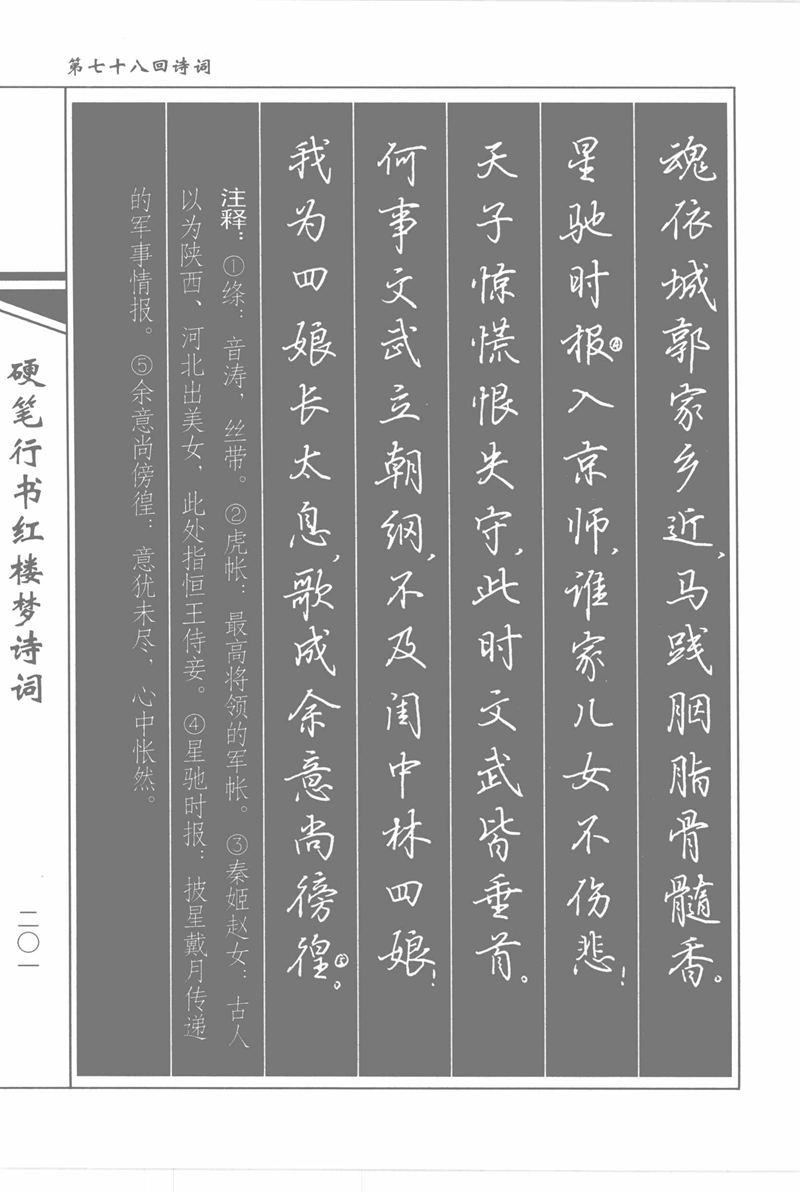 第七十八回诗词
魂依城郭家乡近，马践胭脂骨髓香。
星驰时报④入京师，谁家儿女不伤悲！
天子惊慌恨失守，此时文武皆垂首。
何事文武立朝纲，不及闺中林四娘！
我为四娘长太息，歌成余意尚徬徨⑤。
注释：①绦：音涛，丝带。②虎帐：最高将领的军帐。③秦姬赵女：古人
以为陕西、河北出美女，此处指恒王侍妾。④星驰时报：披星戴月传递
的军事情报。⑤余意尚傍徨：意犹未尽，心中怅然。
硬笔行书红楼梦诗词
二〇一